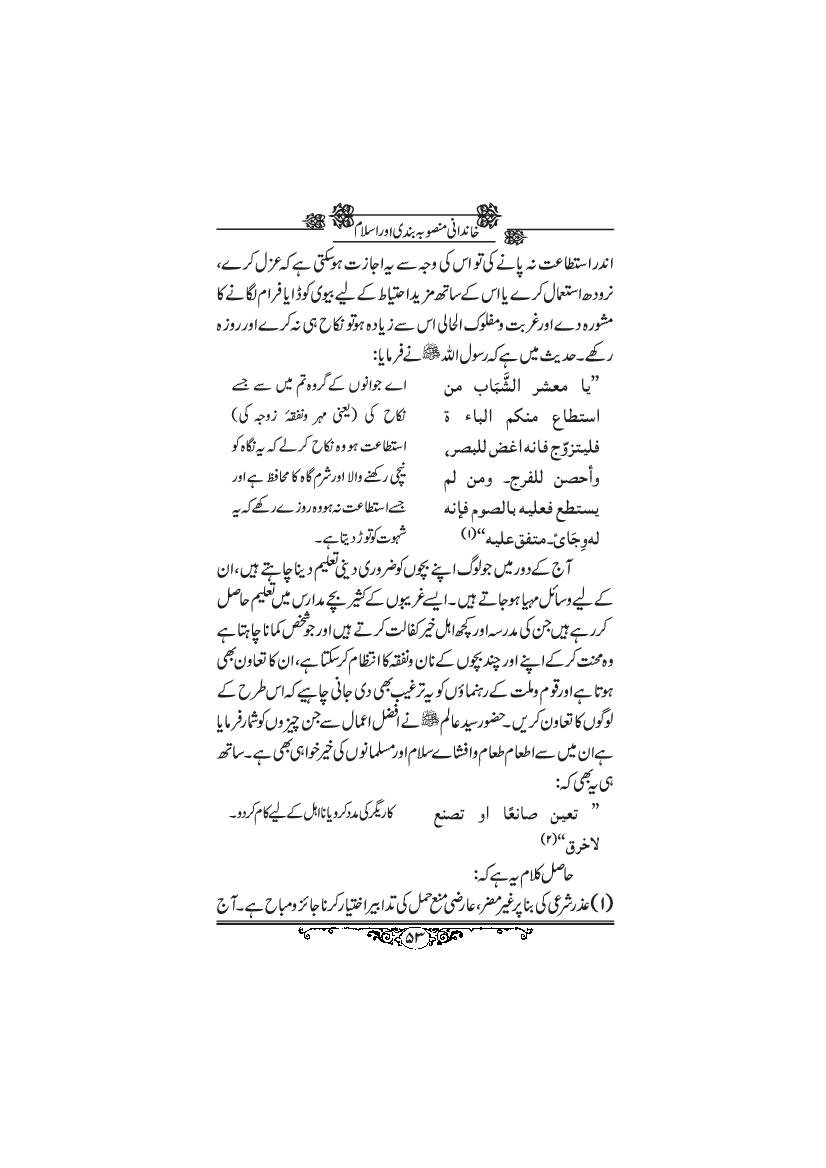 خاندانی منصوبہ بندی اور اسلام
اندر استطاعت نہ پانے کی تو اس کی وجہ سے یہ اجازت ہوسکتی ہے کہ عزل کرے،
نرودھ استعمال کرے یا اس کے ساتھ مزید احتیاط کے لیے بیوی کو ڈایا فرام لگانے کا
مشورہ دے اور غربت و مفلوک الحالی اس سے زیادہ ہو تو نکاح ہی نہ کرے اور روزہ
رکھے۔ حدیث میں ہے کہ رسول اللہ ﷺ نے فرمایا:
”یا معشر الشَّبَاب من
استطاع منکم الباء ة
فلیتزوّج فانه اغض للبصر،
وأحصن للفرج۔ ومن لم
یستطع فعلیه بالصوم فإنه
له وِجَائ۔ متفق علیه“(۱)
اے جوانوں کے گروہ تم میں سے جسے
نکاح کی (یعنی مہر ونفقۂ زوجہ کی)
استطاعت ہو وہ نکاح کرلے کہ یہ نگاہ کو
نیچی رکھنے والا اور شرم گاہ کا محافظ ہے اور
جسے استطاعت نہ ہو وہ روزے رکھے کہ یہ
شہوت کو توڑ دیتا ہے۔
آج کے دور میں جو لوگ اپنے بچوں کو ضروری دینی تعلیم دینا چاہتے ہیں، ان
کے لیے وسائل مہیا ہوجاتے ہیں۔ ایسے غریبوں کے کثیر بچے مدارس میں تعلیم حاصل
کررہے ہیں جن کی مدرسہ اور کچھ اہل خیر کفالت کرتے ہیں اور جو شخص کمانا چاہتا ہے
وہ محنت کرکے اپنے اور چند بچوں کے نان ونفقہ کا انتظام کرسکتا ہے، ان کا تعاون بھی
ہوتا ہے اور قوم وملت کے رہنماؤں کو یہ ترغیب بھی دی جانی چاہیے کہ اس طرح کے
لوگوں کا تعاون کریں۔ حضور سید عالم ﷺ نے افضل اعمال سے جن چیزوں کو شمار فرمایا
ہے ان میں سے اطعام طعام وافشاے سلام اور مسلمانوں کی خیر خواہی بھی ہے۔ ساتھ
ہی یہ بھی کہ:
” تعین صانعًا او تصنع
لاخرق“(۲)
کاریگر کی مدد کرو یا نااہل کے لیے کام کردو۔
حاصل کلام یہ ہے کہ:
(۱) عذر شرعی کی بنا پر غیر مضر، عارضی منع حمل کی تدابیر اختیار کرنا جائز و مباح ہے۔ آج
۵۳